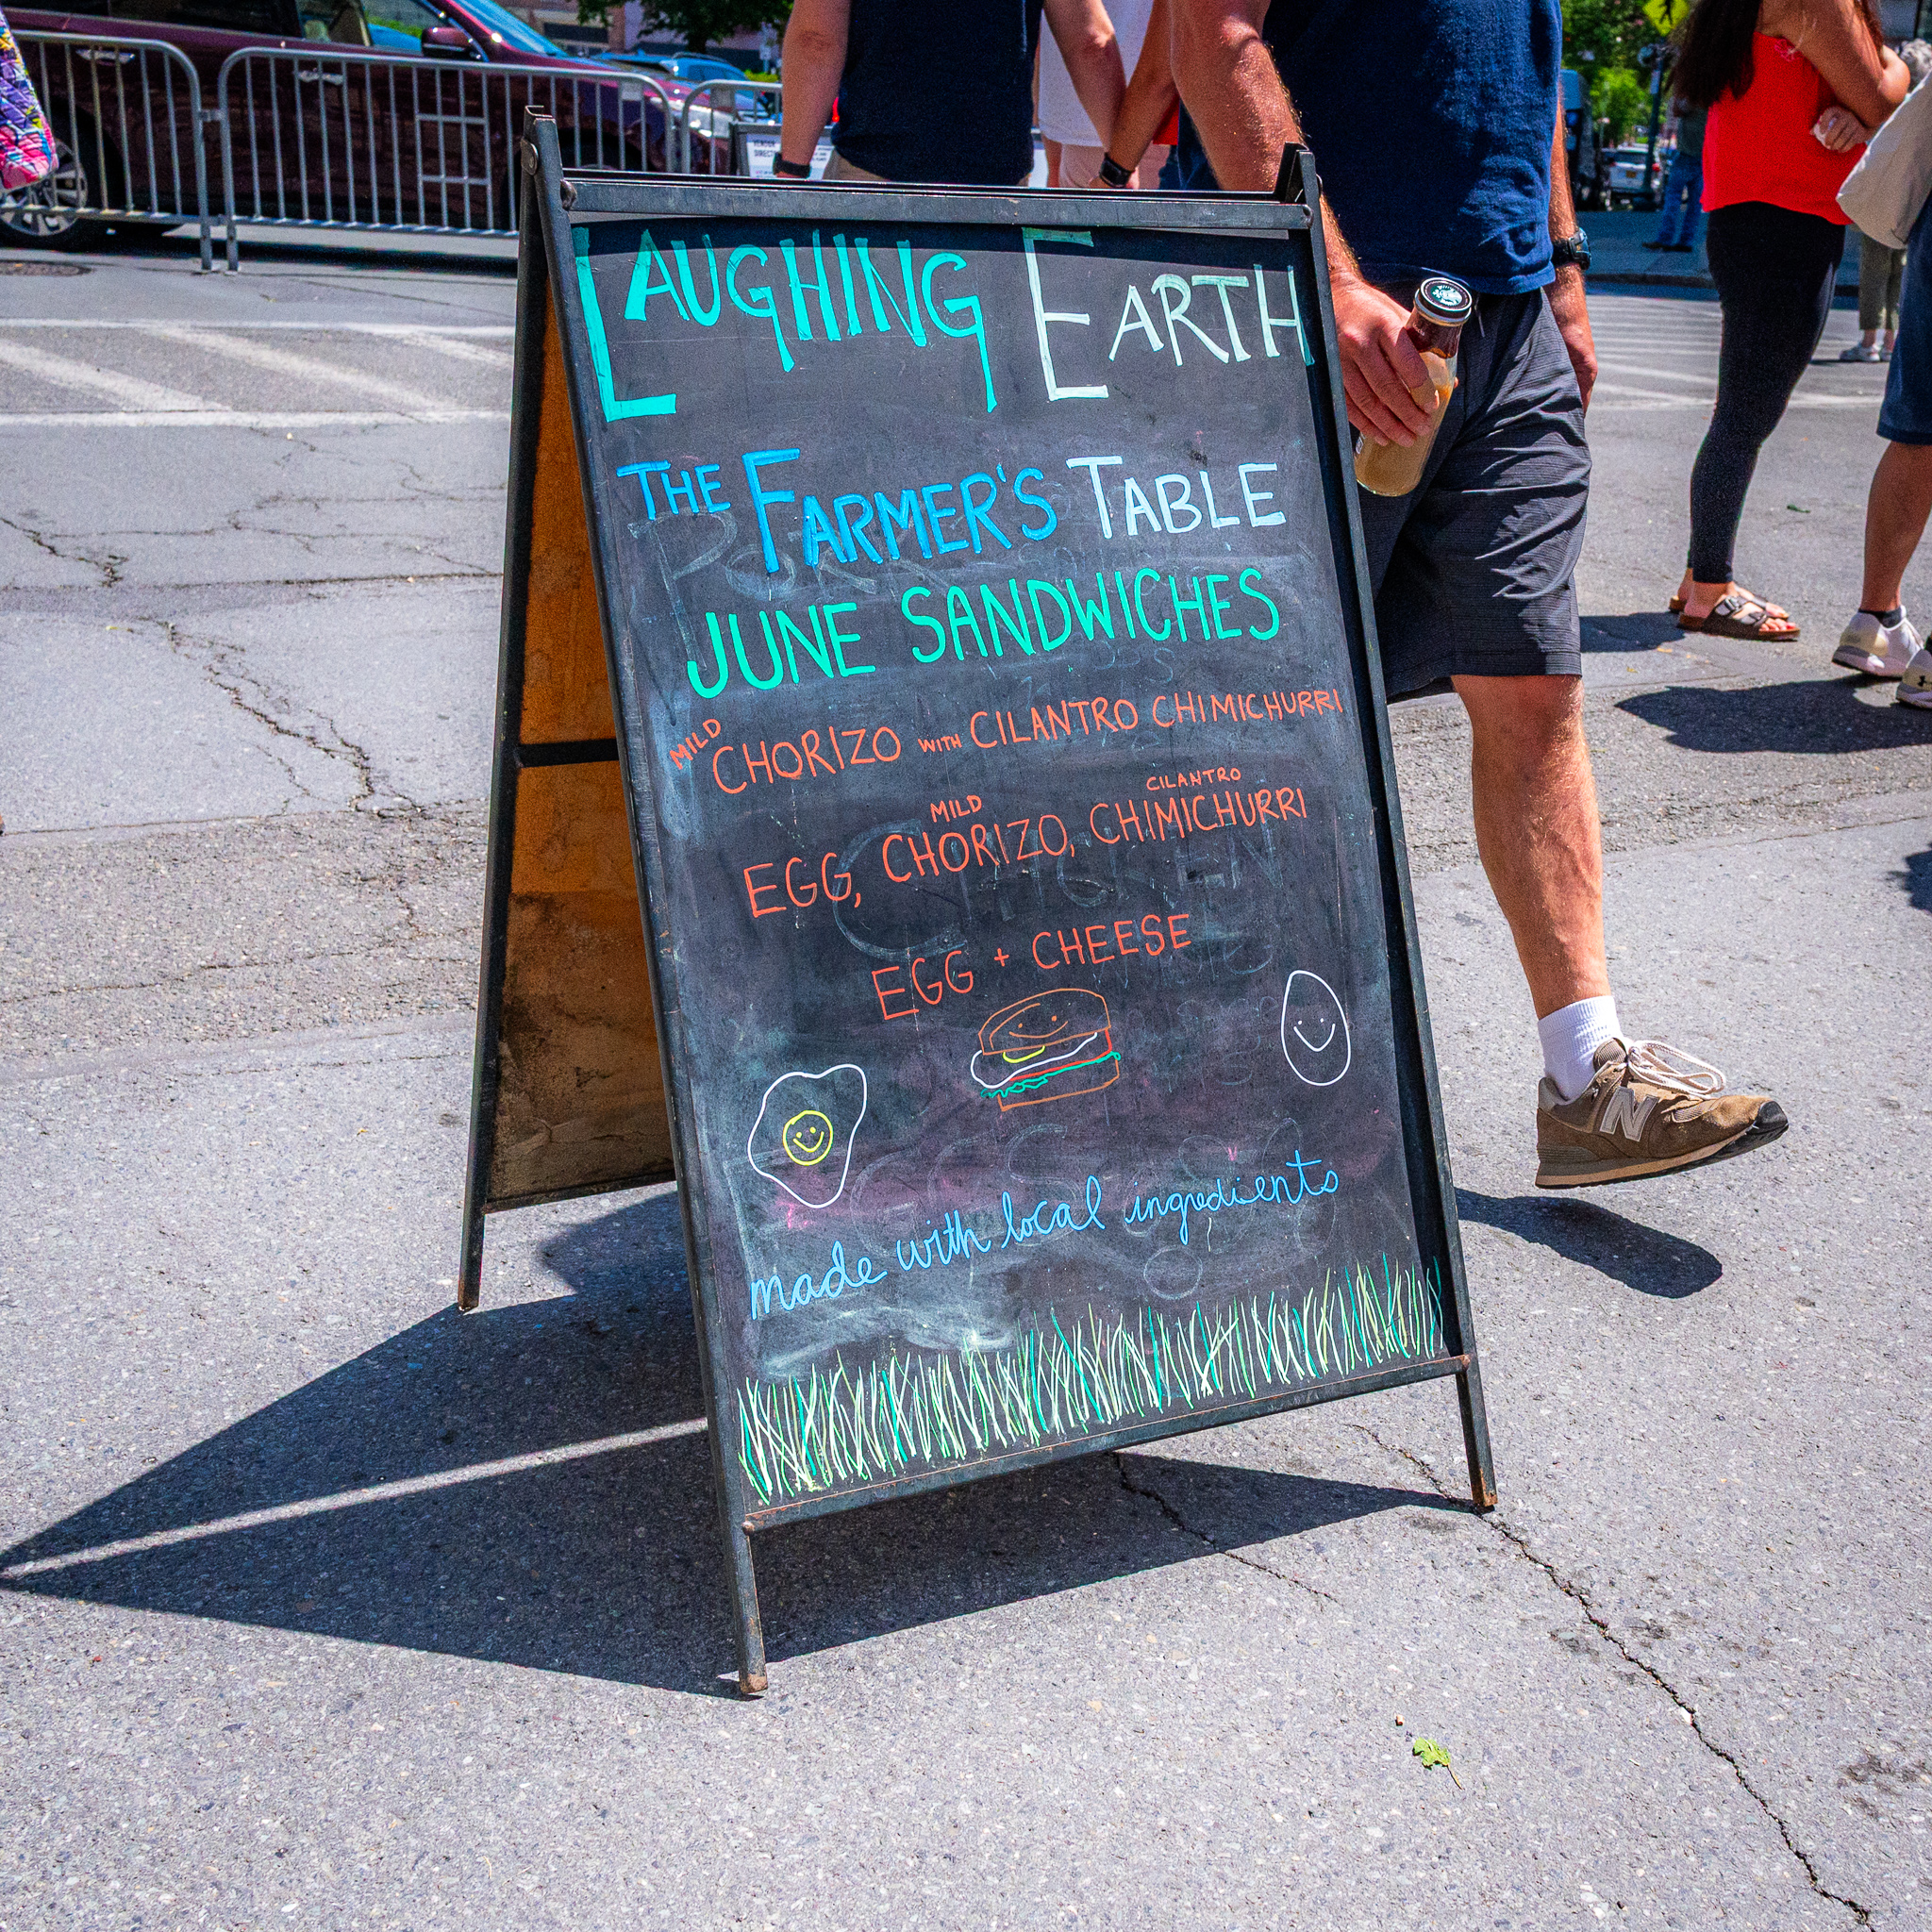 LAUGHING EARTH
THE FARMER'S TABLE
JUNE SANDWICHES
MILD CHORIZO WITH CILANTRO CHIMICHURRI
MILD CILANTRO
EGG, CHORIZO, CHIMICHURRI
EGG + CHEESE
made with local ingredients
N